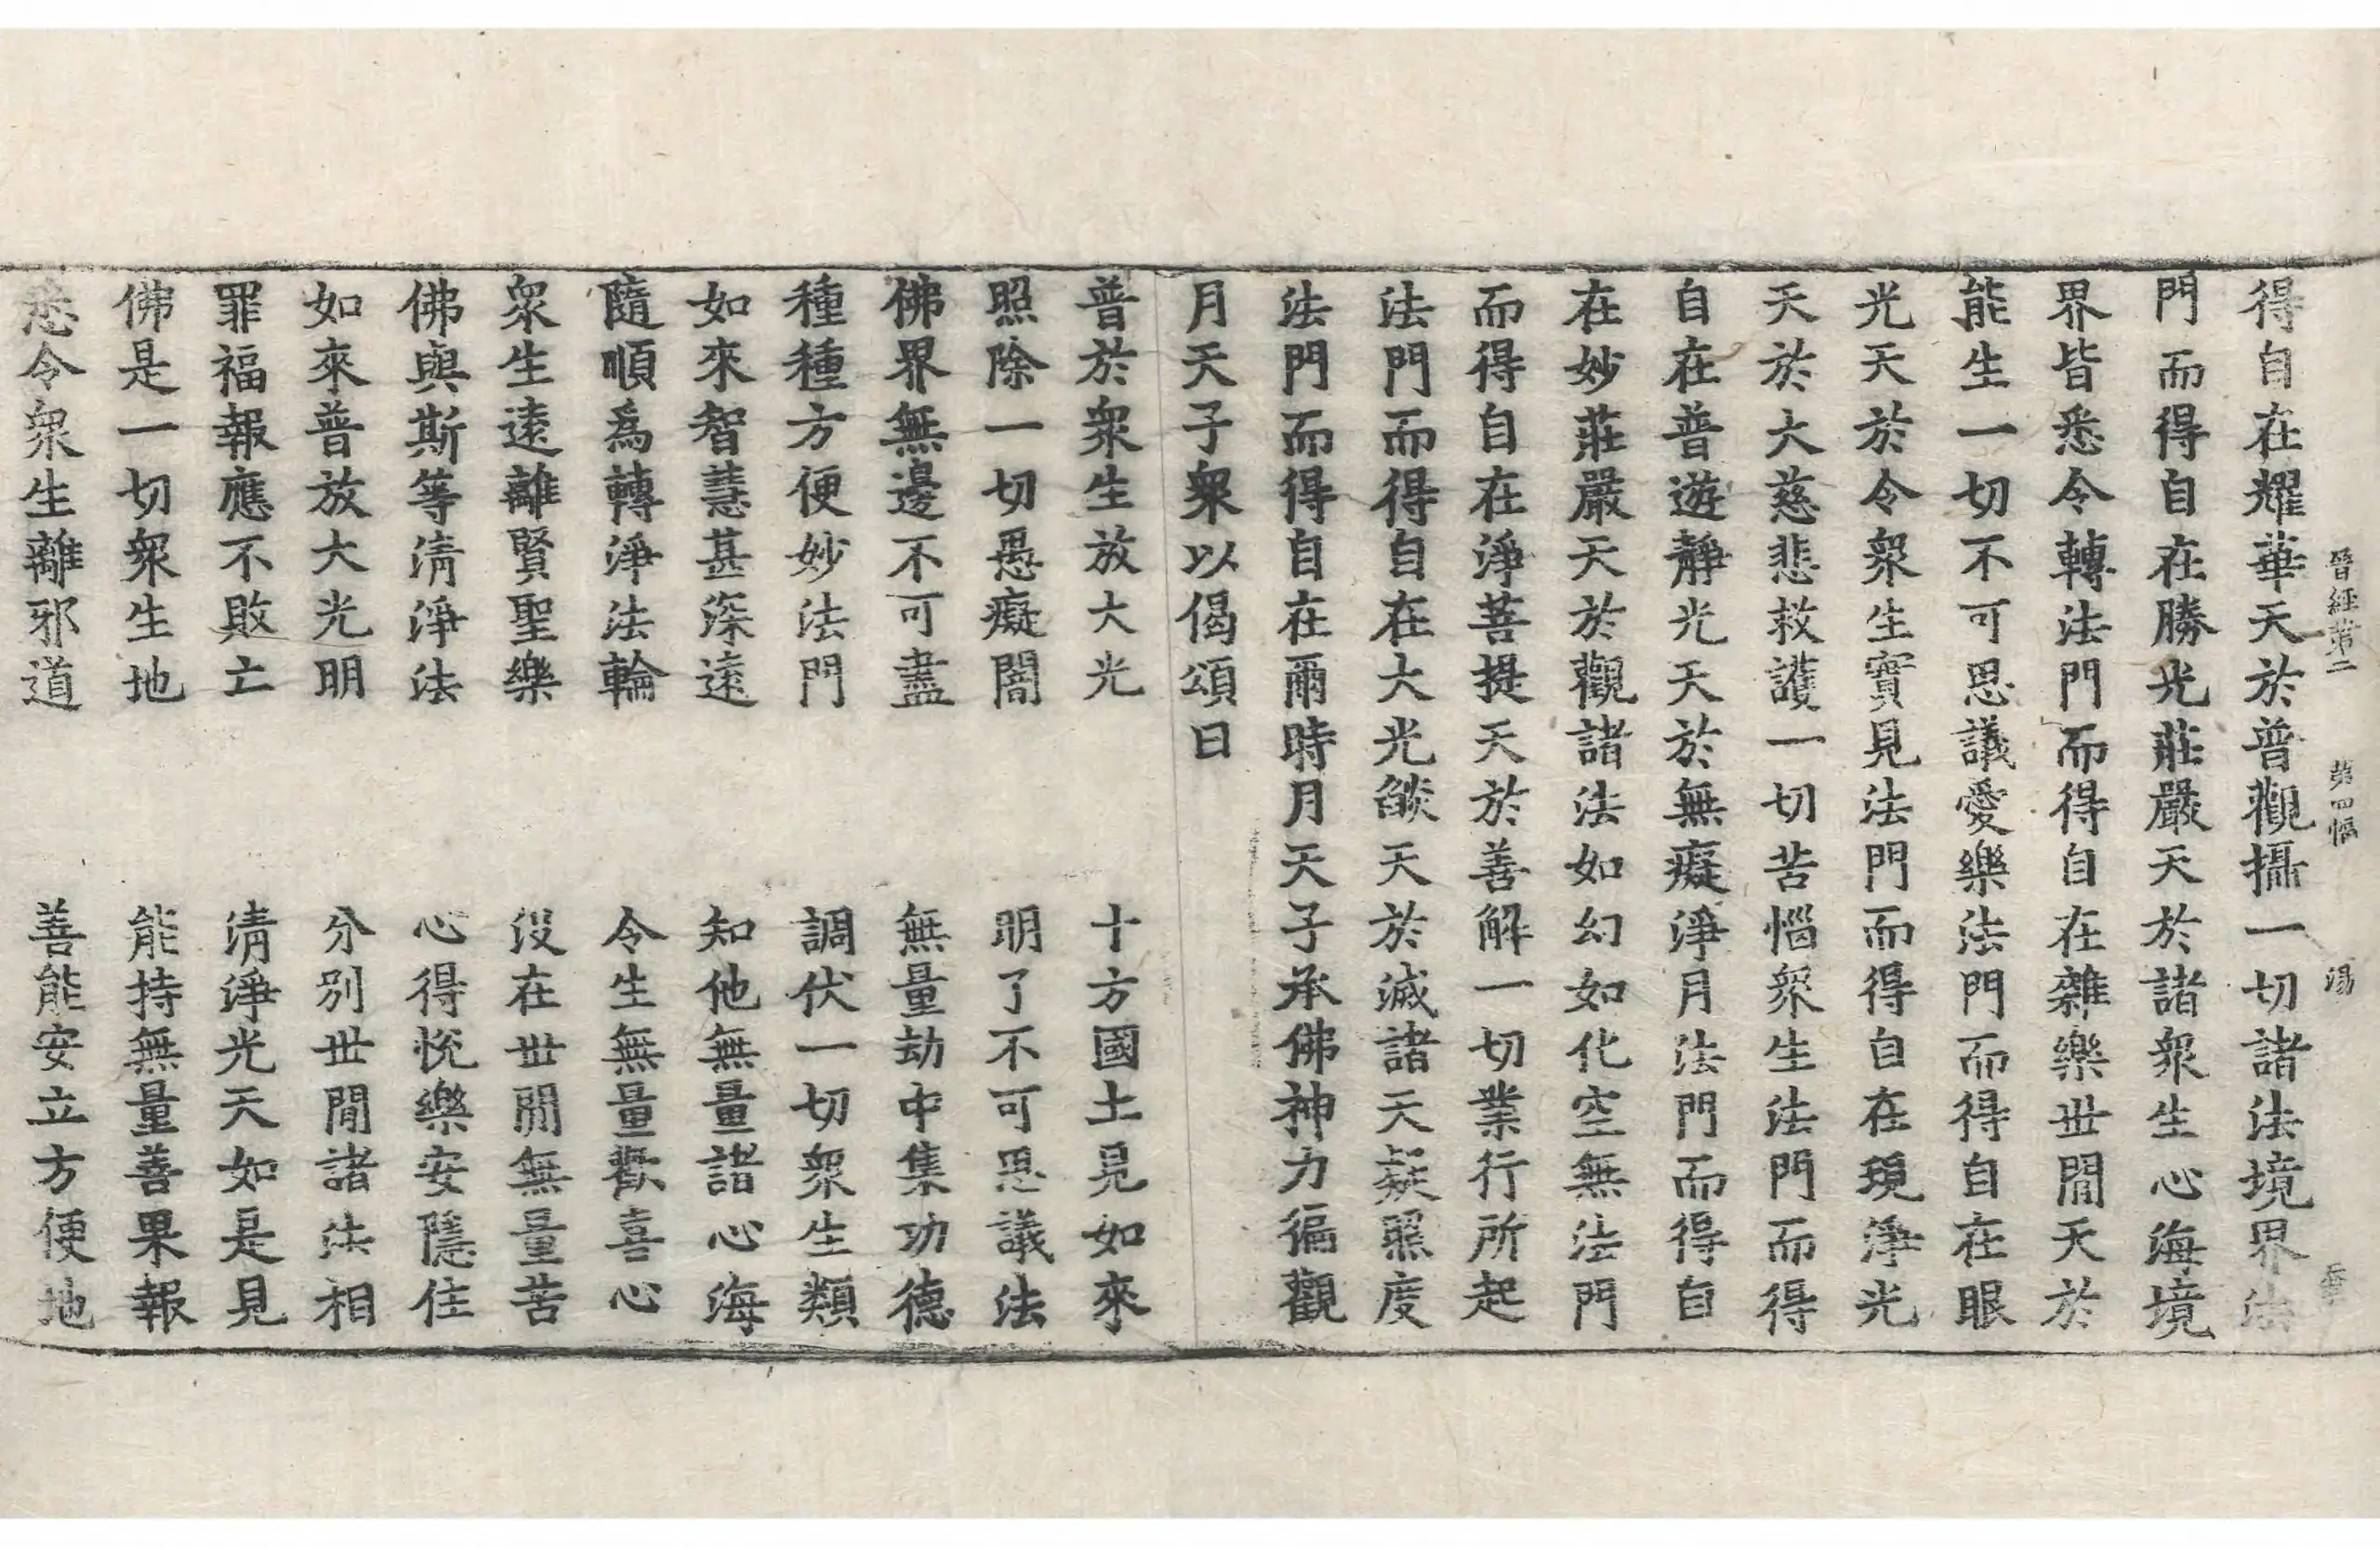 晉經第二　第四幅　湯
得自在耀華天於普觀攝一切諸法境界法
門而得自在勝光莊嚴天於諸衆生心海境
界皆悉令轉法門而得自在雜樂世閒天於
能生一切不可思議愛樂法門而得自在眼
光天於令衆生實見法門而得自在現淨光
天於大慈悲救護一切苦惱衆生法門而得
自在普遊靜光天於無癡淨月法門而得自
在妙莊嚴天於觀諸法如幻如化空無法門
而得自在淨菩提天於善解一切業行所起
法門而得自在大光㷿天於滅諸天疑照度
法門而得自在爾時月天子承佛神力徧觀
月天子衆以偈頌曰
普於衆生放大光　十方國土見如來
照除一切愚癡闇　明了不可思議法
佛界無邊不可盡　無量劫中集功德
種種方便妙法門　調伏一切衆生類
如來智慧甚深遠　知他無量諸心海
隨順爲轉淨法輪　令生無量歡喜心
衆生遠離賢聖樂　没在世閒無量苦
佛與斯等淸淨法　心得悅樂安隱住
如來普放大光明　分別世閒諸法相
罪福報應不敗亡　淸淨光天如是見
佛是一切衆生地　能持無量善果報
悉令衆生離邪道　善能安立方便地